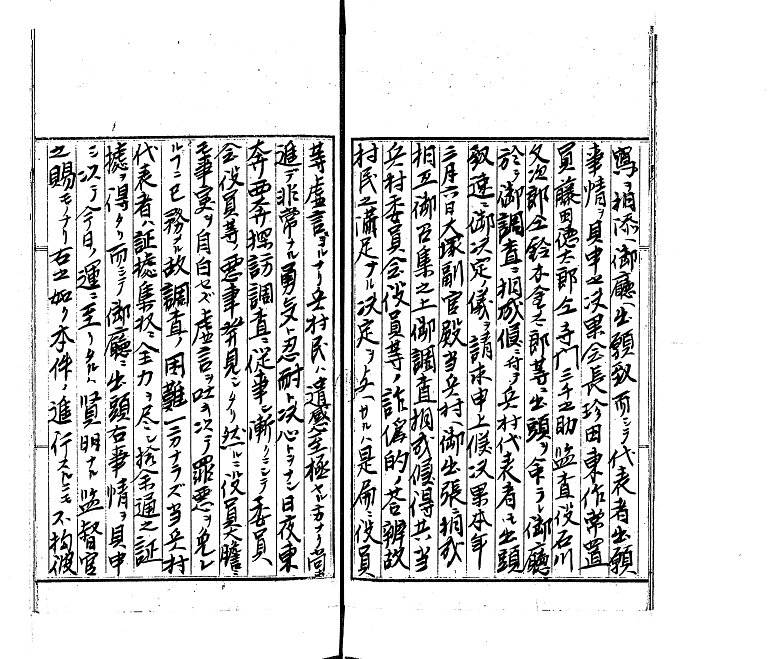 写ヲ相添ヘ御廳ヘ出願致而シテ代表者出願
事情ヲ具申セ決果会長珍田東作常置
員藤田徳太郎仝寺門三千之助監査役石川
文次郎仝鈴木金三郎等ニ出頭ヲ命ラレ御廳ニ
於テ御調査ニ相成候ニ付ヲ兵村代表者モ出頭
致速ニ御決定ノ儀ヲ請求申上候決果本年
三月六日大塚副官殿当兵村ヘ御出張ニ相成
相互御召集之上御調査相成候得共当
兵村委員会役員等ノ詐偽的ノ答辨故
村民之満足ナル決定ヲ与ヘサルハ是扁ニ役員
等虚言ニヨルナリ兵村民ハ遺感至極ヤル方ナリ尚
進デ非常ナル勇気ト忍耐ト決心トヲナシ日夜東
奔西奔探訪調査ニ従事シ漸クニシテ委員
会役員等ノ悪事発見シタリ然ルニ役員大膽ニ
モ事実ヲ自白セズ虚言ヲ吐キ以テ罪悪ヲ免レ
ルヿニ已務ル故調査ノ困難一方ナラズ当兵村
代表者ハ証據集收ニ全力ヲ尽シ拾余通之証
據ヲ得タリ而シテ御廳ニ出頭右事情ヲ具申
シ以テ今日ノ運ニ至リタルハ賢明ナル監督官
之賜モノナリ右之如ク本件ノ進行スルニモ不拘彼